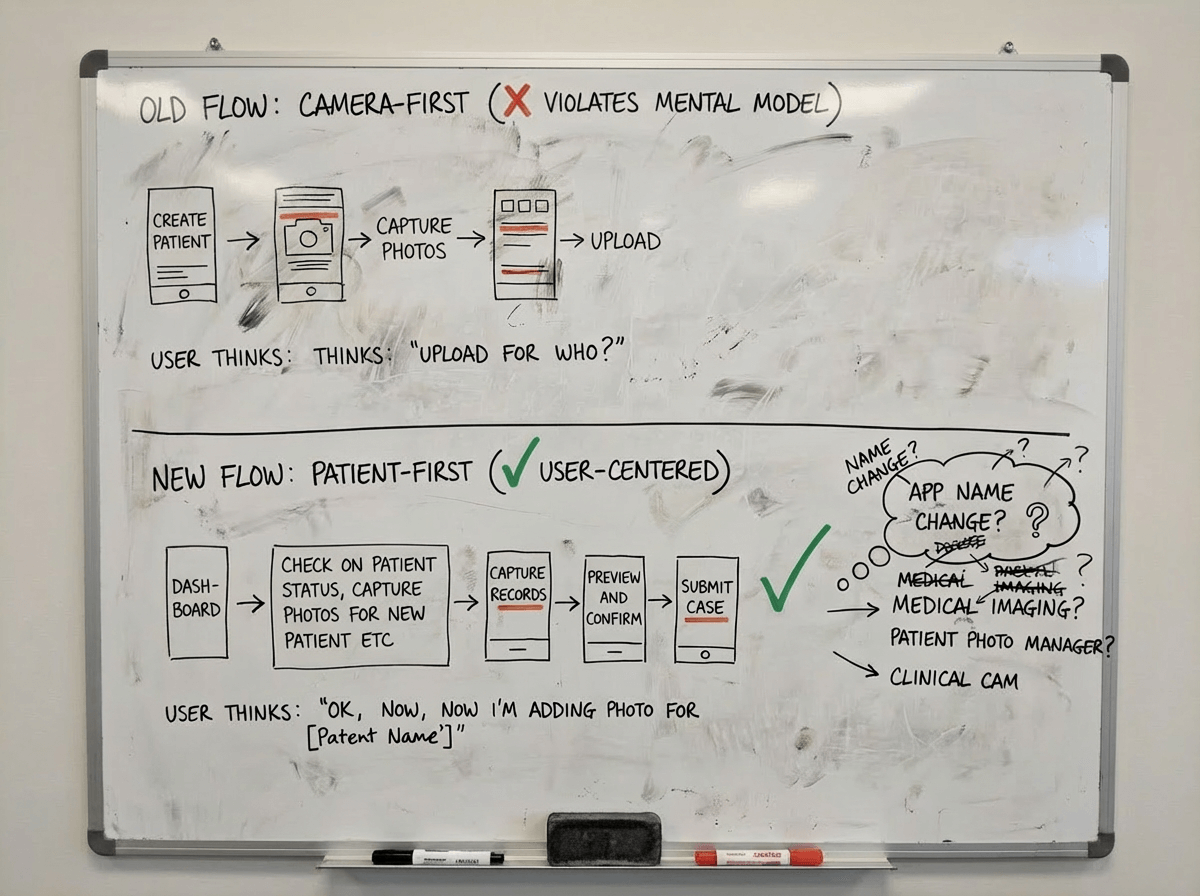 OLD FLOW: CAMERA-FIRST (X VIOLATES MENTAL MODEL)
CREATE
PATIENT
CAPTURE
PHOTOS
UPLOAD
USER THINKS: THINKS: "UPLOAD FOR WHO?"
NEW FLOW: PATIENT-FIRST (✓ USER-CENTERED)
DASH-
BOARD
CHECK ON PATIENT
STATUS, CAPTURE
PHOTOS FOR NEW
PATIENT ETC
CAPTURE
RECORDS
PREVIEW
AND
CONFIRM
SUBMIT
CASE
USER THINKS: "OK, NOW, NOW I'M ADDING PHOTO FOR
[Patent Name']"
NAME
CHANGE?
? ?
APP NAME
CHANGE? ?
MEDICAL
IMAGING ?
MEDICAL IMAGING?
PATIENT PHOTO MANAGER?
CLINICAL CAM